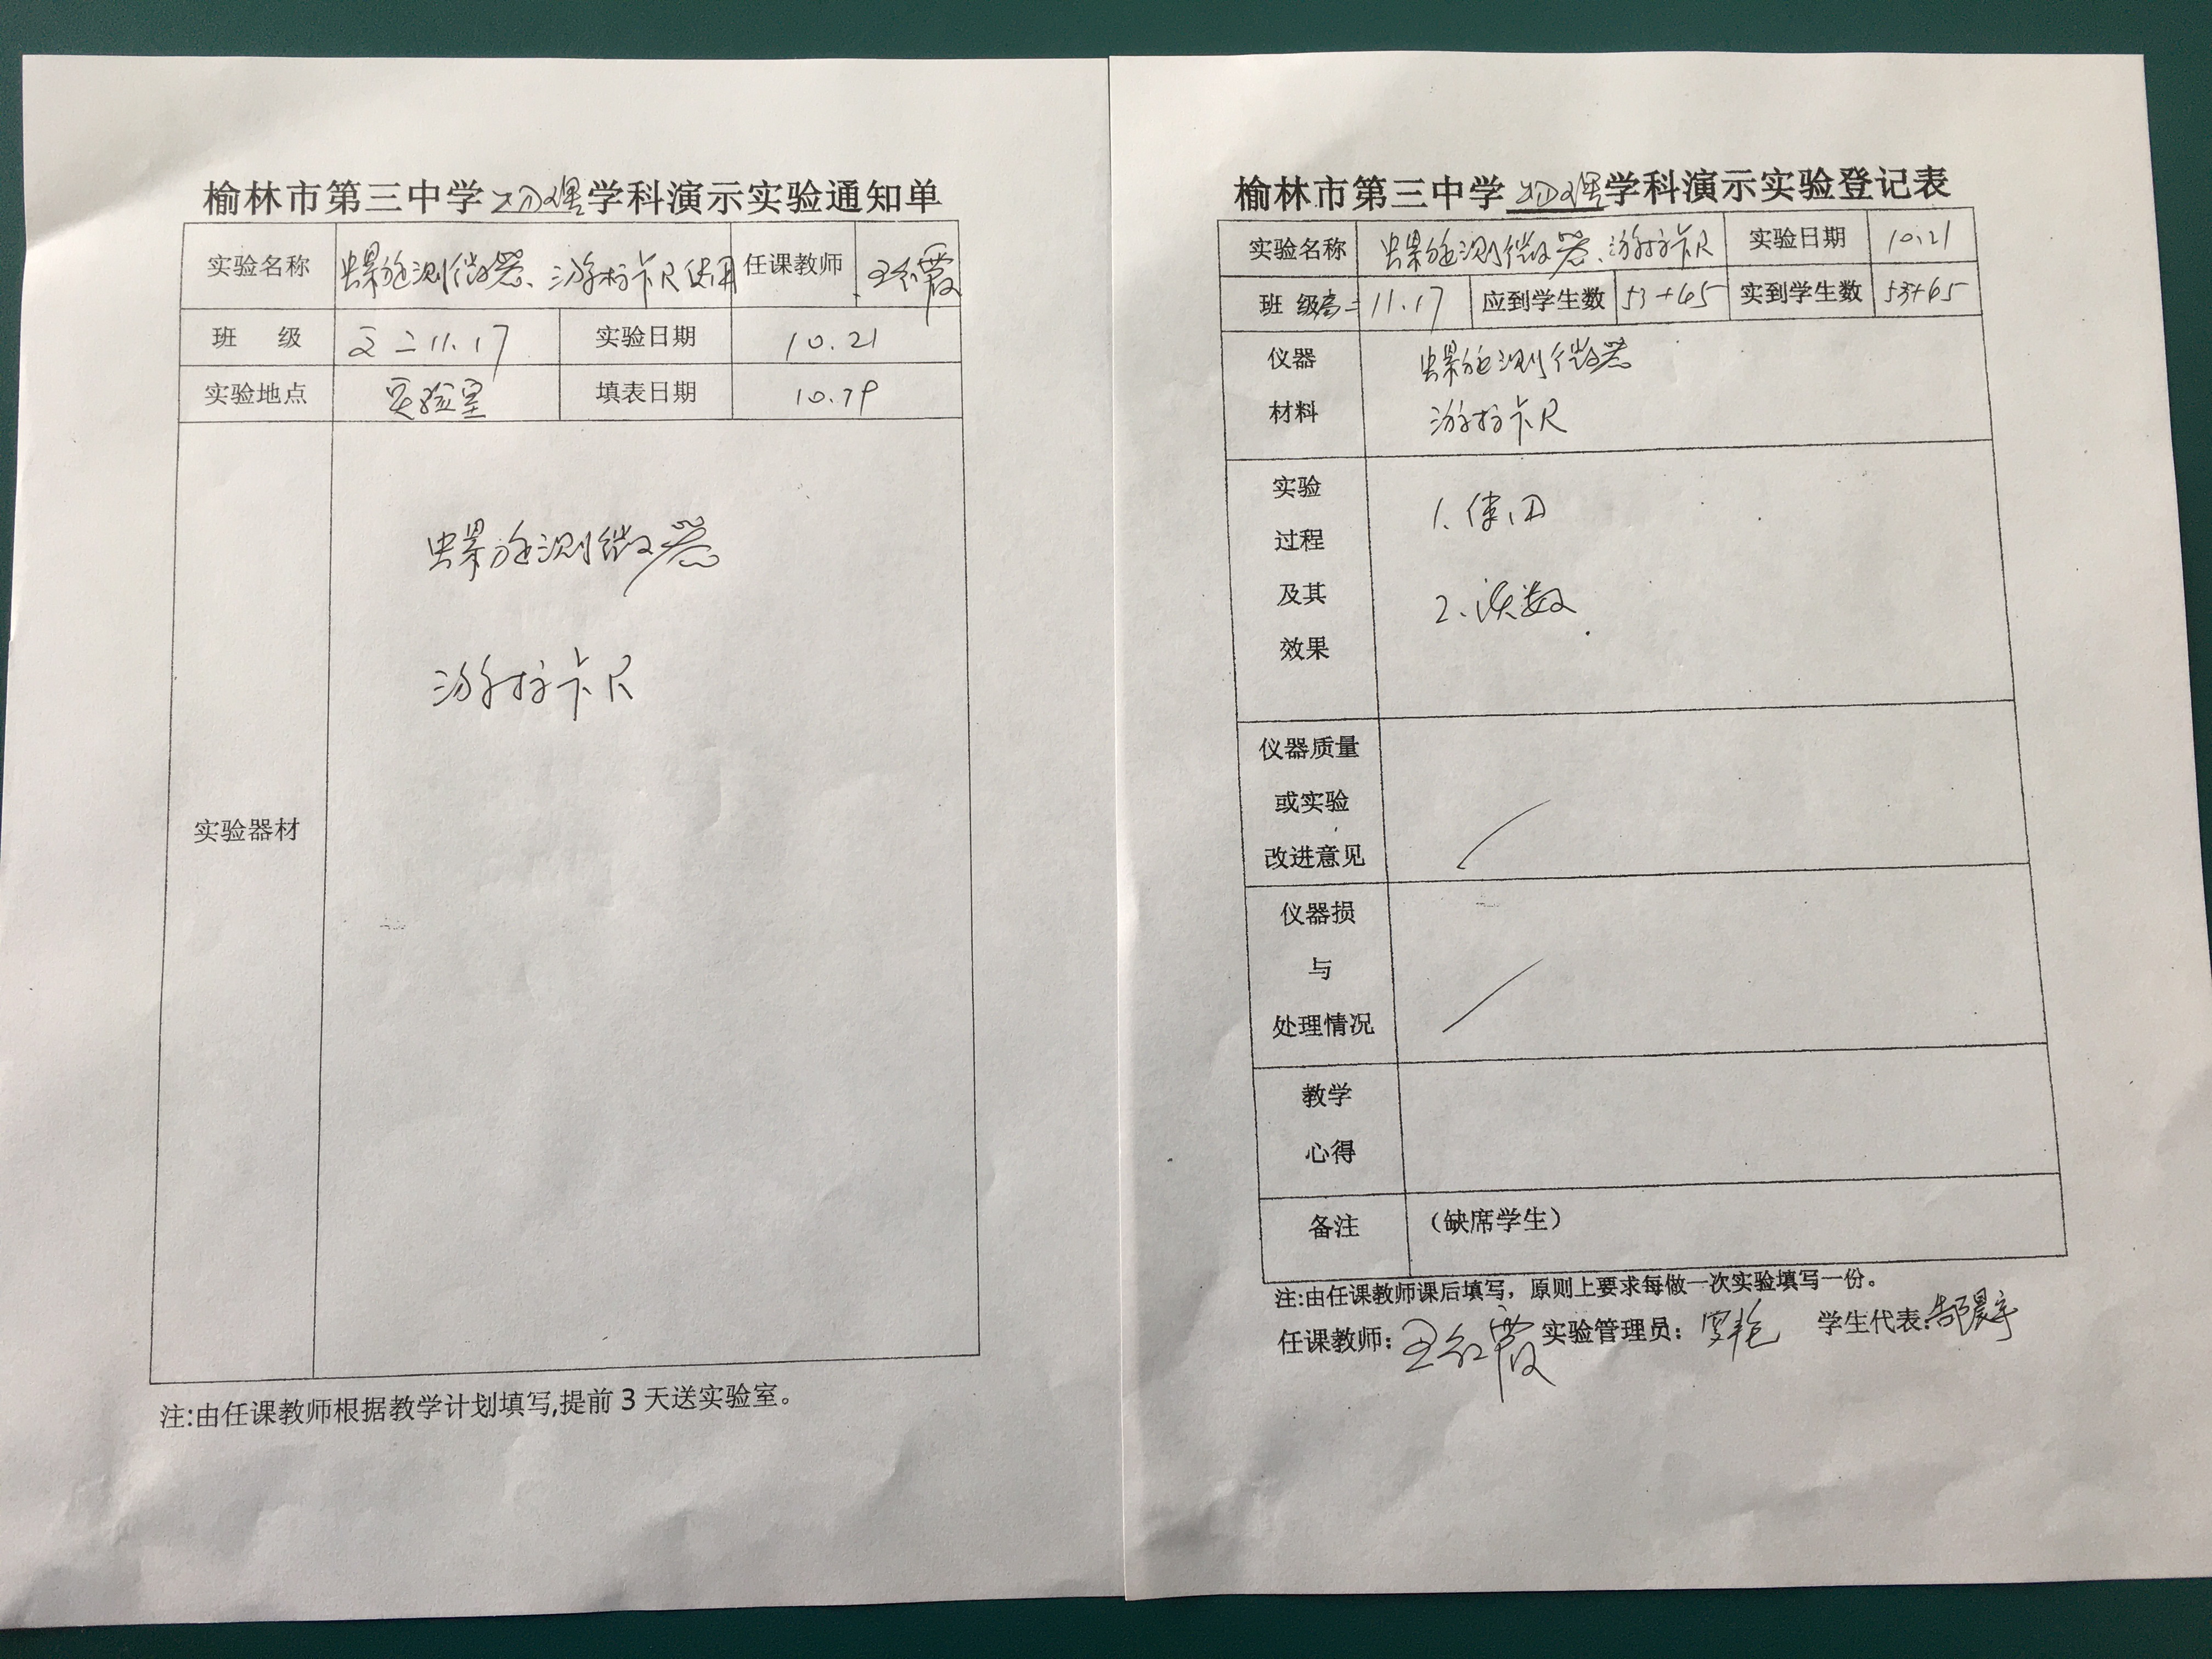 榆林市第三中学物理学科演示实验通知单
实验名称 螺旋测微器、游标卡尺使用 任课教师 王红霞
班 级 高二11.17 实验日期 10.21
实验地点 实验室 填表日期
实验器材
螺旋测微器
游标卡尺
注:由任课教师根据教学计划填写,提前3天送实验室。
榆林市第三中学物理学科演示实验登记表
实验名称 螺旋测微器、游标卡尺 实验日期 10.21
班 级 高二 11.17 应到学生数 53+65 实到学生数 53+65
仪器 螺旋测微器
材料 游标卡尺
实验 1.使用
过程
及其 2.读数
效果
仪器质量
或实验
改进意见
仪器损
与
处理情况
教学
心得
备注 （缺席学生）
注:由任课教师课后填写，原则上要求每做一次实验填写一份。
任课教师：王红霞 实验管理员： 学生代表：